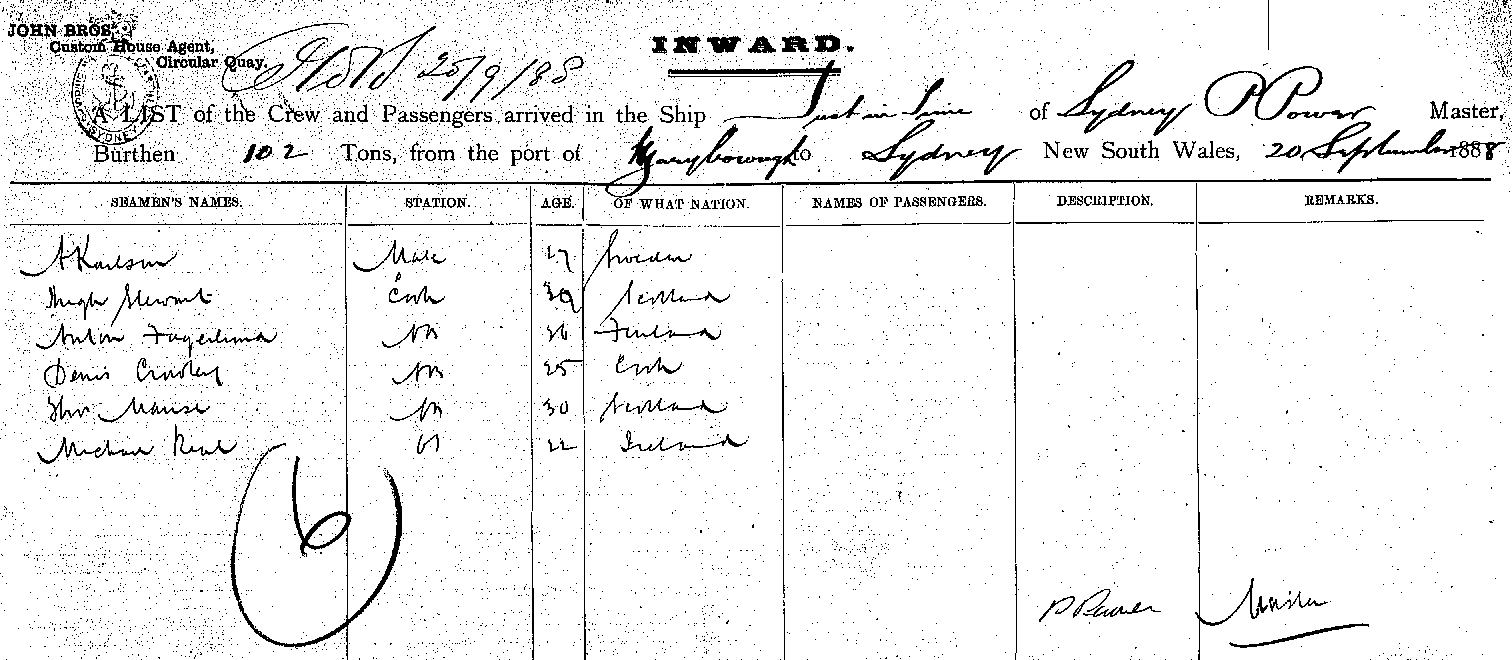 JOHN BROS.
Custom House Agent,
Circular Quay.
INWARD.
20/9/88
SYDNEY
A LIST of the Crew and Passengers arrived in the Ship Just in Time of Sydney P Power Master,
Burthen 102 Tons, from the port of Maryborough to Sydney New South Wales, 20 September 1888
SEAMEN'S NAMES. STATION. AGE. OF WHAT NATION. NAMES OF PASSENGERS. DESCRIPTION. REMARKS.
A Karlson Mate 27 Sweden
Hugh Stewart Cook 39 Scotland
Anton Fagerlund AB 36 Finland
Denis Crowley AB 25 Cork
Thos AB 30 Scotland
Michael 22 Ireland
6
P Power Master